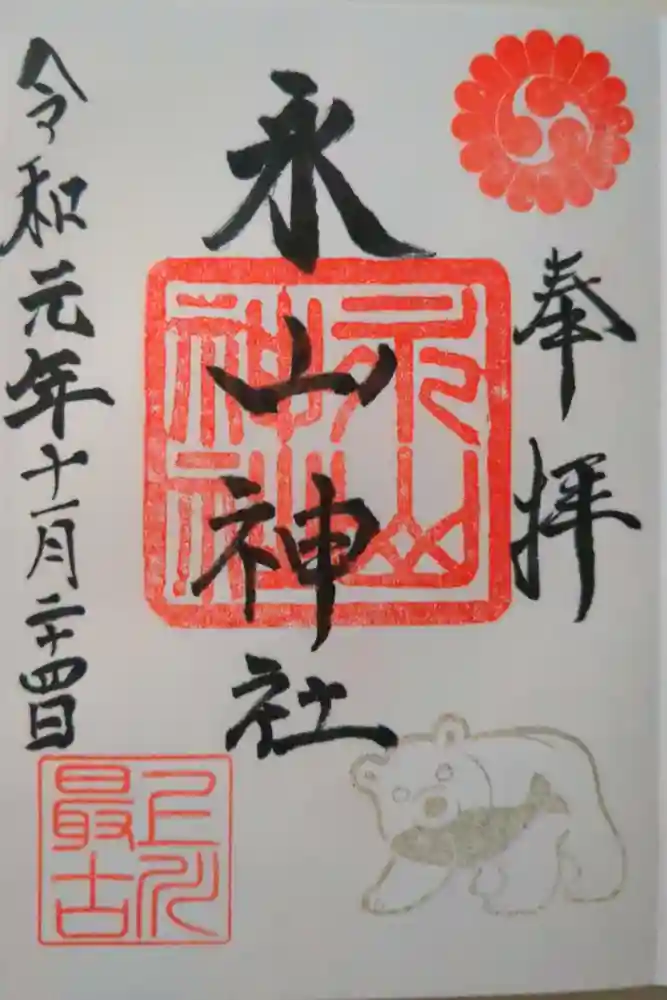 奉拝
永山神社
令和元年十一月二十四日
永山神社
上川最古